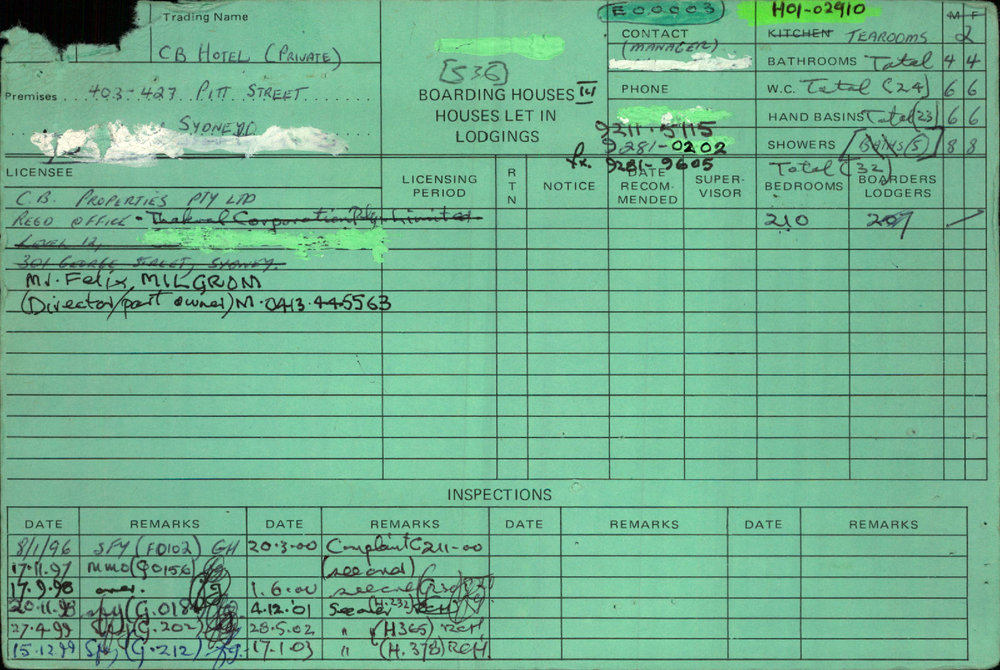 E00003 H01-02910
Trading Name
CB HOTEL (PRIVATE)
Premises 403-427 PITT STREET
SYDNEY
[536]
BOARDING HOUSES
HOUSES LET IN
LODGINGS
CONTACT
(MANAGER)
PHONE
9211·5115
9281-0202
fx. 9281-9605
M F
KITCHEN TEAROOMS 2
BATHROOMS Total 4 4
W.C. Total (24) 6 6
HAND BASINS Total (23) 6 6
SHOWERS [BATHS (5)] 8 8
Total (32)
LICENSEE
LICENSING PERIOD
RTN
NOTICE
DATE RECOM-MENDED
SUPER-VISOR
BEDROOMS
BOARDERS LODGERS
C.B. PROPERTIES PTY LTD
REGD OFFICE - Thakral Corporation Limited 210 207
LEVEL 12,
301 GEORGE STREET, SYDNEY.
Mr. Felix MILGROM
(Director/part owner) M·0413·445563
INSPECTIONS
DATE REMARKS DATE REMARKS DATE REMARKS DATE REMARKS
8/1/96 SFY (F0102) GH 20·3·00 Complaint C211-00
17·11·97 (G0156) (see card)
17·9·98 1.6.00 see card
20·11·98 (G.018 4.12.01 (H.232) RCH
27·4·99 (G.202) 28.5.02 " (H365) RCH
15·12·99 (G·212) 17·1·03 " (H.378) RCH